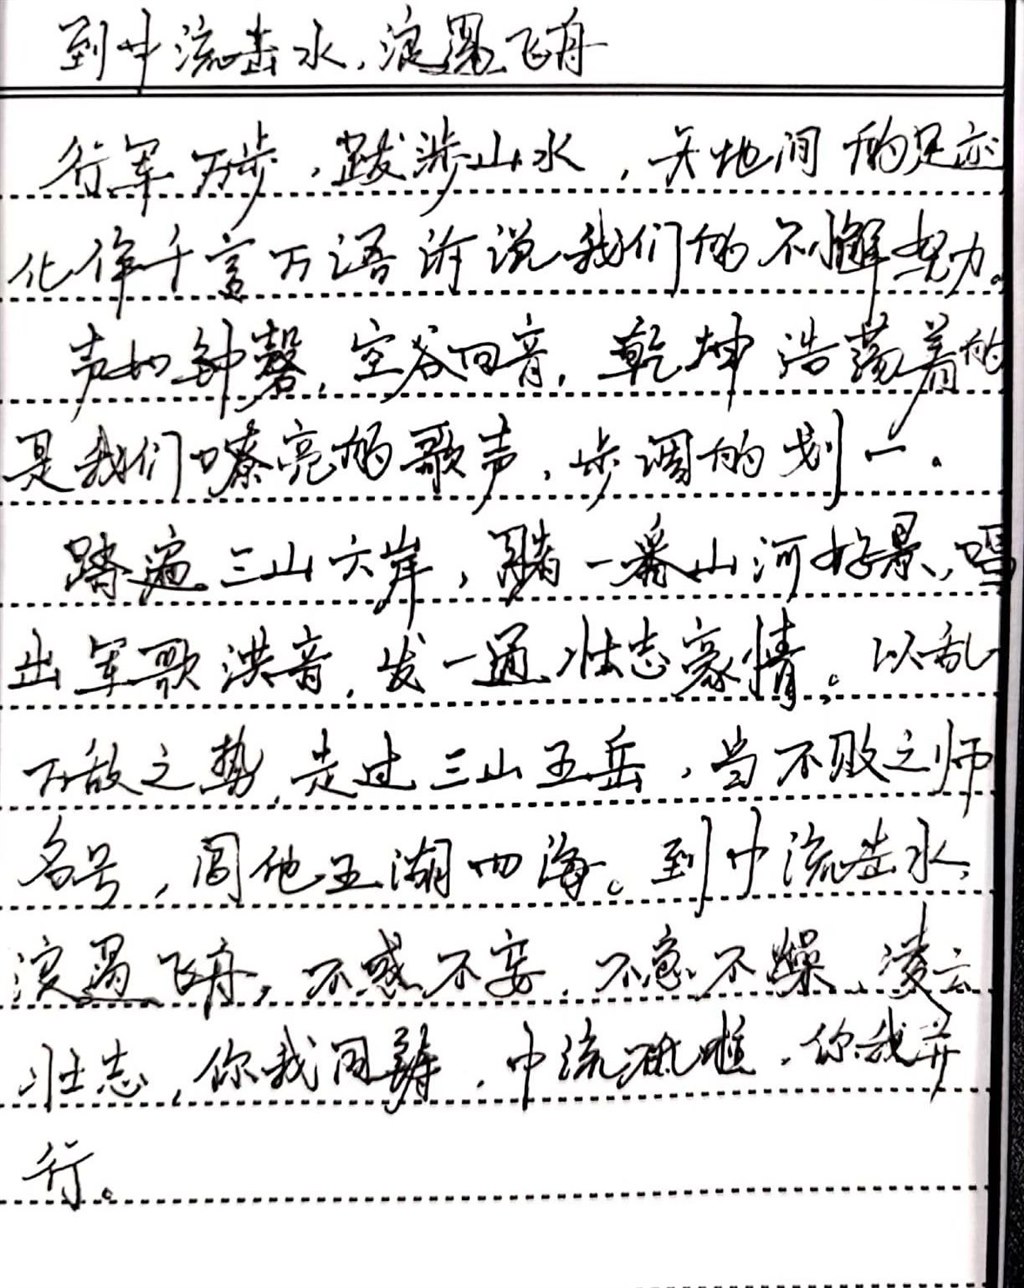 到中流击水，浪遏飞舟
行军万步，跋涉山水，天地间的足迹
化作千言万语诉说我们的不懈努力。
声如钟磬，空谷回音，乾坤浩荡着的
是我们嘹亮的歌声，步调的划一。
踏遍三山六岸，踏一番山河好景，唱
出军歌洪音，发一通壮志豪情。以乱
万敌之势，走过三山五岳，当不败之师
名号，闯他五湖四海。到中流击水，
浪遏飞舟，不惑不妄，不急不躁，凌云
壮志，你我同筹，中流砥柱，你我并
行。